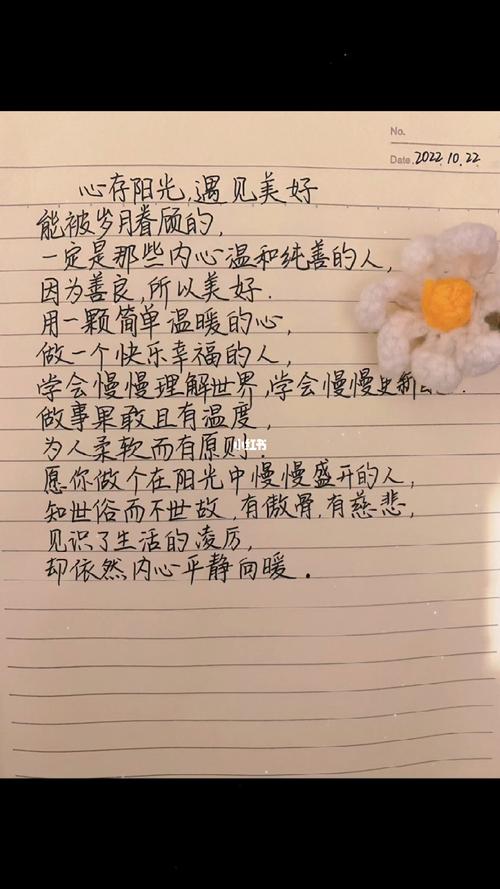 No.
Date. 2022.10.22
心存阳光,遇见美好
能被岁月眷顾的,
一定是那些内心温和纯善的人,
因为善良,所以美好.
用一颗简单温暖的心,
做一个快乐幸福的人,
学会慢慢理解世界,学会慢慢更新
做事果敢且有温度,
为人柔软而有原则.
小红书
愿你做个在阳光中慢慢盛开的人,
知世俗而不世故,有傲骨,有慈悲,
见识了生活的凌厉,
却依然内心平静向暖.